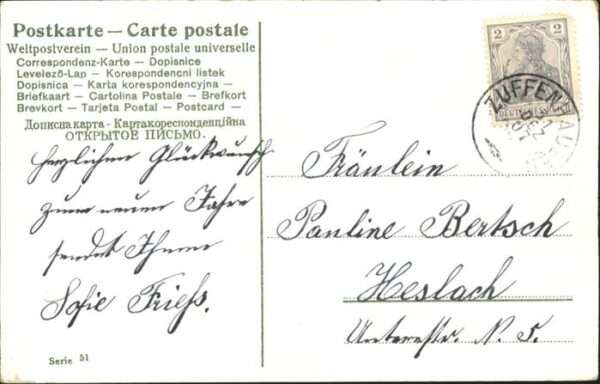 Postkarte — Carte postale
Weltpostverein — Union postale universelle
Correspondenz-Karte — Dopisnice
Levelező-Lap — Korespondencni listek
Dopisnica — Karta korespondencyjna —
Briefkaart — Cartolina Postale — Brefkort
Brevkort — Tarjeta Postal — Postcard —
Дописна карта - Картакореспонденційна
ОТКРЫТОЕ ПИСЬМО.
herzlichen Glückwunsch
zum neuen Jahre
sendet Ihnen
Sofie Friess.
Serie 51
2 2
DEUTSCHES
ZUFFENHAUSEN
31
DEZ
Fräulein
Pauline Bertsch
Heslach
Unterestr. N. 5.